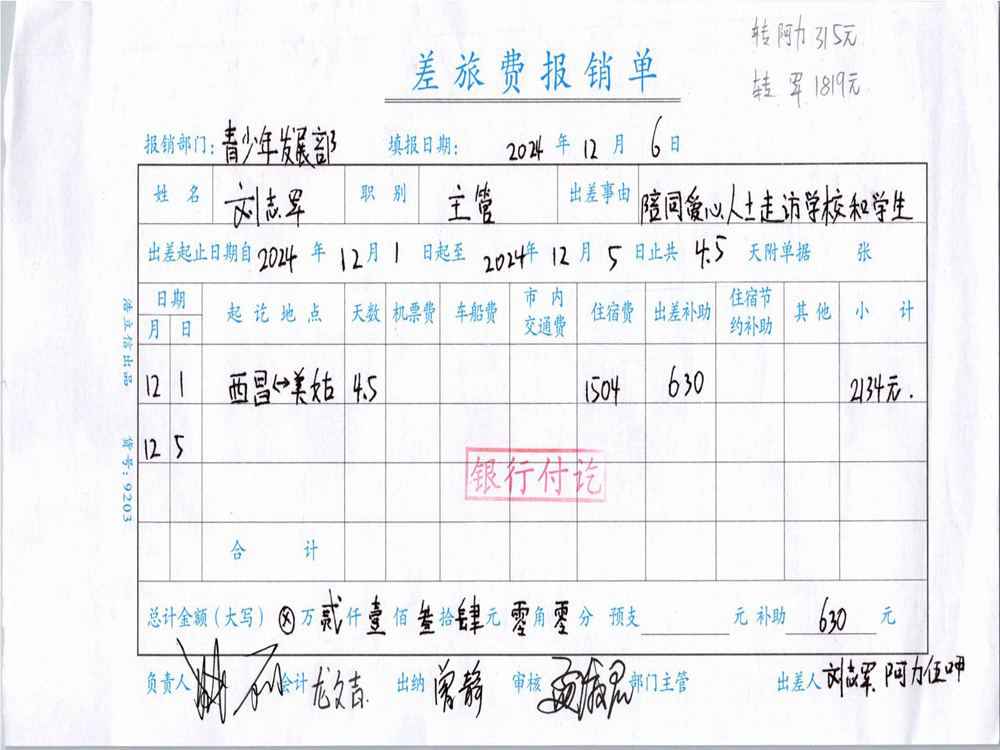 转阿力315元
转军1819元
差旅费报销单
报销部门：青少年发展部 填报日期：2024年12月6日
姓名 刘志军 职别 主管 出差事由 陪同爱心人士走访学校和学生
出差起止日期自2024年12月1日起至2024年12月5日止共4.5天附单据 张
日期 起讫地点 天数 机票费 车船费 市内交通费 住宿费 出差补助 住宿节约补助 其他 小计
月 日
12 1 西昌↔美姑 4.5 1504 630 2134元.
12 5
银行付讫
合计
总计金额（大写）⊗万贰仟壹佰叁拾肆元零角零分 预支 元 补助 630 元
负责人 会计 龙文吉 出纳 曾静 审核 部门主管 出差人 刘志军 阿力伍呷
浩立信出品 货号：9203